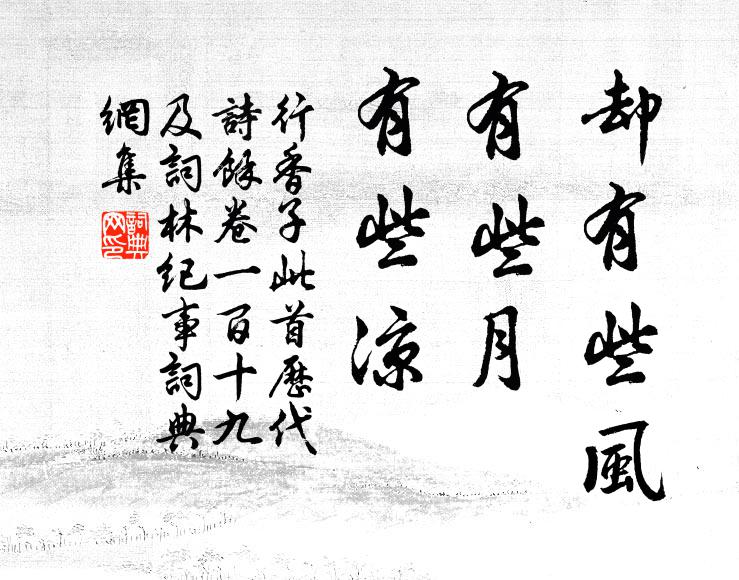 却有些風
有些月
有些凉
行香子此首歷代
詩餘卷一百十九
及詞林紀事詞典
網集
詞典
网印